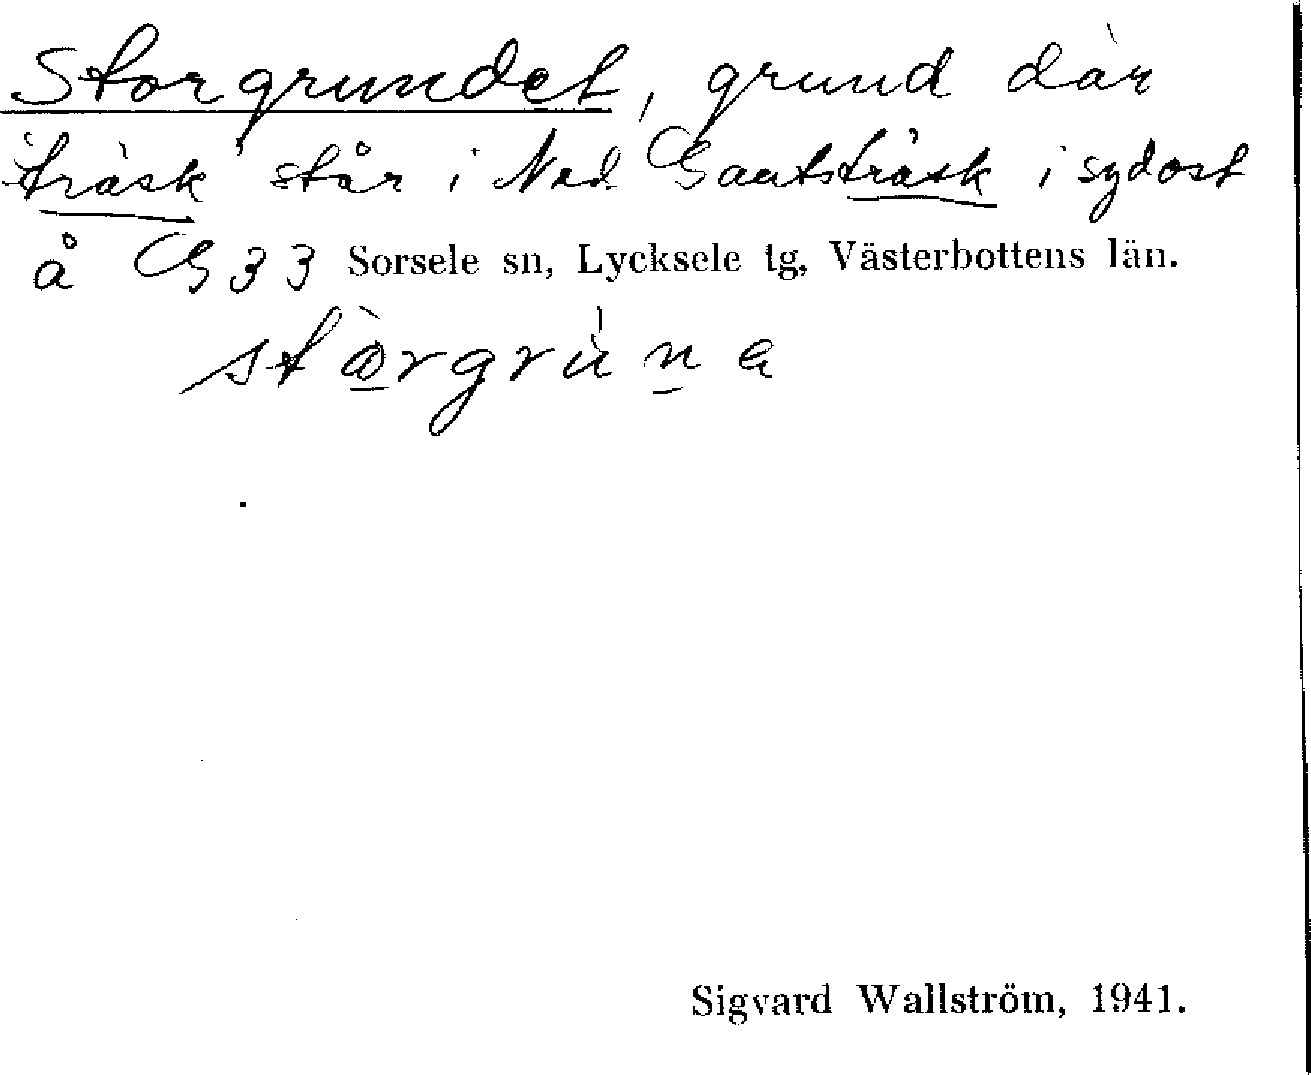 Storgrundet, grund där
träsk står i Ned. Gautsträsk i sydost
å G 33 Sorsele sn, Lycksele tg, Västerbottens län.
Sigvard Wallström, 1941.